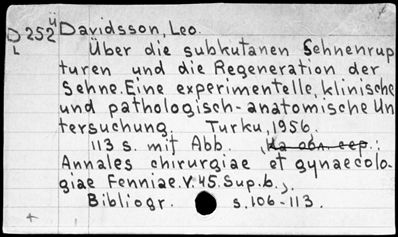 D 252 ü Davidsson, Leo.
L
Über die subkutanen Sehnenrup
turen und die Regeneration der
Sehne. Eine experimentelle, klinische
und pathologisch-anatomische Un
tersuchung. Turku, 1956.
113 s. mit Abb. (На обл. сер.:
Annales chirurgiae et gynaecolo-
giae Fenniae. V. 45. Sup. 6.).
Bibliogr. s. 106-113.